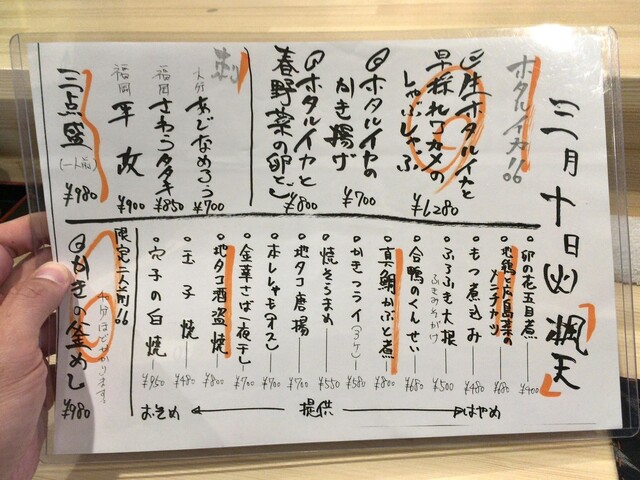 三月十日(火) 颯天
ホタルイカ!!
①生ホタルイカと
早採れワカメの
しゃぶしゃぶ
¥1,280
②ホタルイカの
かき揚げ
¥700
③ホタルイカと
春野菜の卵とじ
¥800
刺
大分 あじなめろう ¥700
福岡 さわらタタキ ¥850
福岡 平政 ¥900
三点盛(一人前) ¥980
・卯の花五目煮 ¥400
・地鶏と広島菜の
メンチカツ ¥680
・もつ煮込み ¥480
・ふろふき大根
ふきみそがけ ¥500
・合鴨のくんせい ¥680
・真鯛かぶと煮 ¥800
・かきフライ(3ケ) ¥580
・焼そうめん ¥550
・地タコ唐揚 ¥700
・本ししゃも(オス) ¥700
・金華さば一夜干し ¥700
・地タコ酒盗焼 ¥800
・玉子焼 ¥480
・穴子の白焼 ¥950
はやめ
提供
おそめ
限定二人前!!
かきの釜めし ¥980